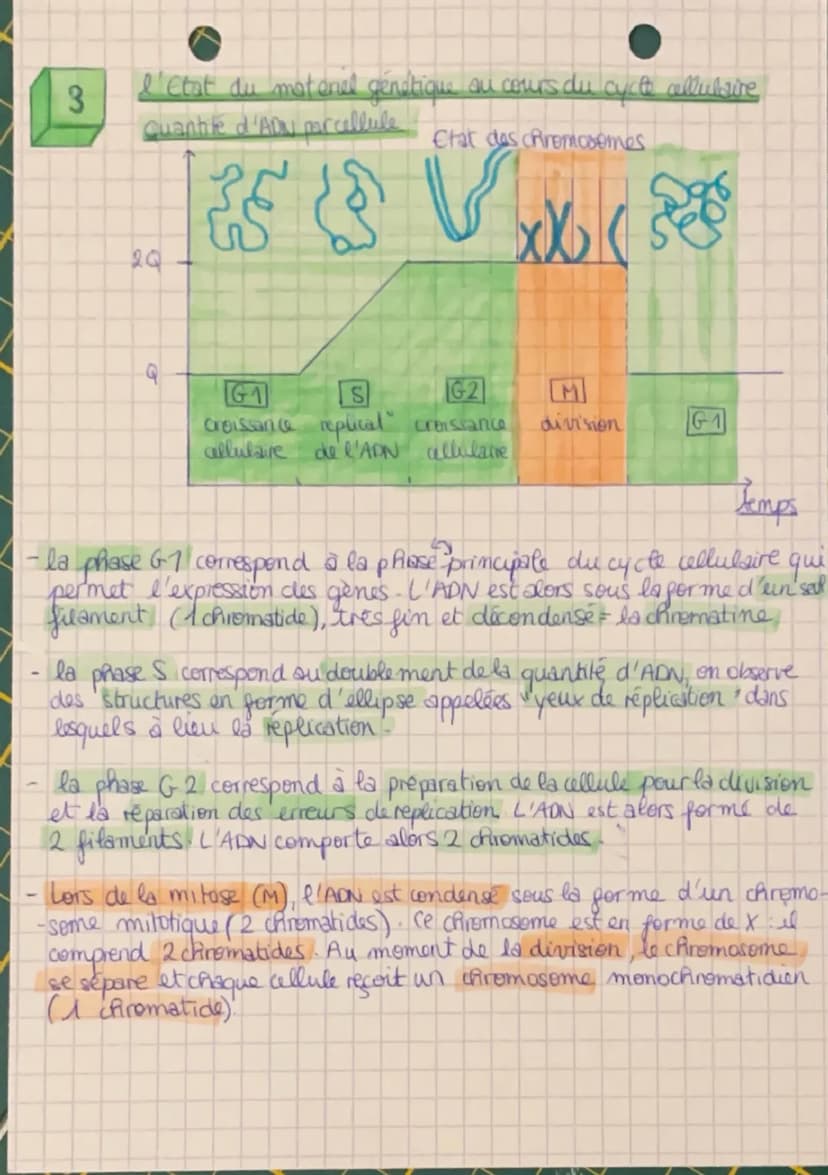 3
l'Etat du matériel génétique au cours du cycle cellulaire
Quantité d'ADN par cellule
Etat des chromosomes
2Q
Q
G1
S
G2
M
croissance replicat° croissance division
cellulaire de l'ADN cellulaire
G1
temps
- la phase G1 correspond à la phase principale du cycle cellulaire qui
permet l'expression des gènes. L'ADN est alors sous la forme d'un seul
filament (1 chromatide), très fin et décondensé = la chromatine
- la phase S correspond au doublement de la quantité d'ADN, on observe
des structures en forme d'ellipse appelées "yeux de réplication" dans
lesquels à lieu la réplication.
- la phase G2 correspond à la préparation de la cellule pour la division
et la réparation des erreurs de replication. L'ADN est alors formé de
2 filaments. L'ADN comporte alors 2 chromatides.
- Lors de la mitose (M), l'ADN est condensé sous la forme d'un chromo-
-some mitotique (2 chromatides). Ce chromosome est en forme de X : il
comprend 2 chromatides. Au moment de la division, le chromosome
se sépare et chaque cellule reçoit un chromosome monochromatidien
(1 chromatide).